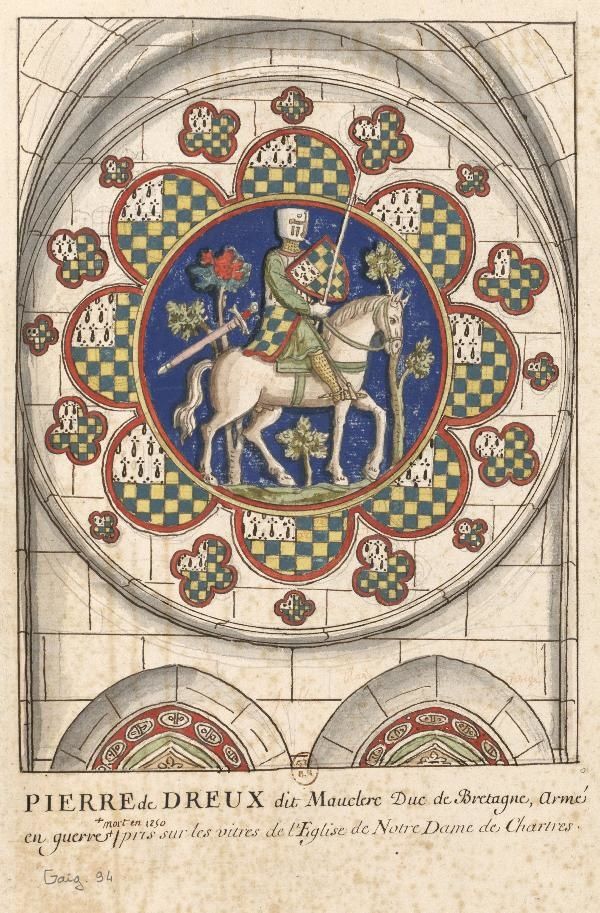 PIERRE de DREUX dit Mauclerc Duc de Bretagne, Armé
+ mort en 1250
en guerre + pris sur les vitres de l'Eglise de Notre Dame de Chartres.
Gaig. 94